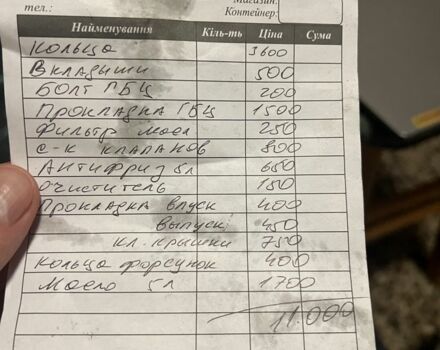 тел.:
Магазин:
Контейнер:
Найменування Кіль-ть Ціна Сума
Кольца 3600
Вкладыши 500
Болт ГБЦ 200
Прокладка ГБЦ 1500
Фильтр масл 250
С-к клапанов 800
Антифриз 5л 650
Очиститель 150
Прокладка впуск 400
выпуск 450
кл. крышки 750
Кольца форсунок 400
Масло 5л 1700
11.000